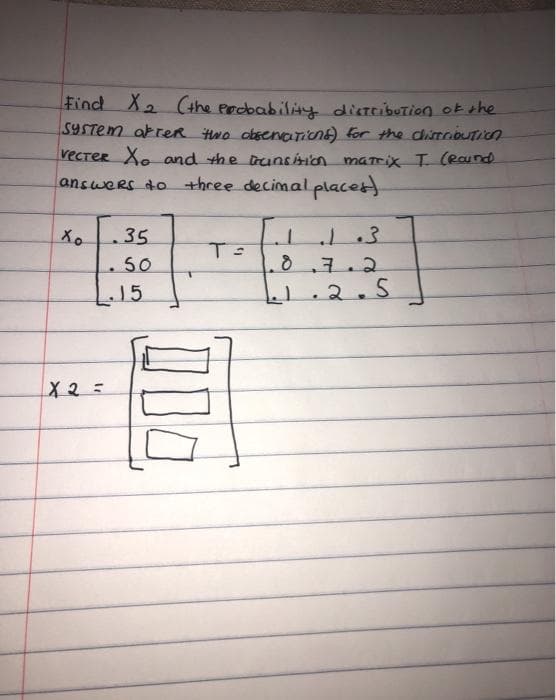 Find X2 (the probability distribution of the
system after two observations) for the distribution
vecter X0 and the transition matrix T. (Round
answers to three decimal places)
X0 [.35 .50 .15], T = [.1 .1 .3
.8 .7 .2
.1 .2 .5]
X2 =